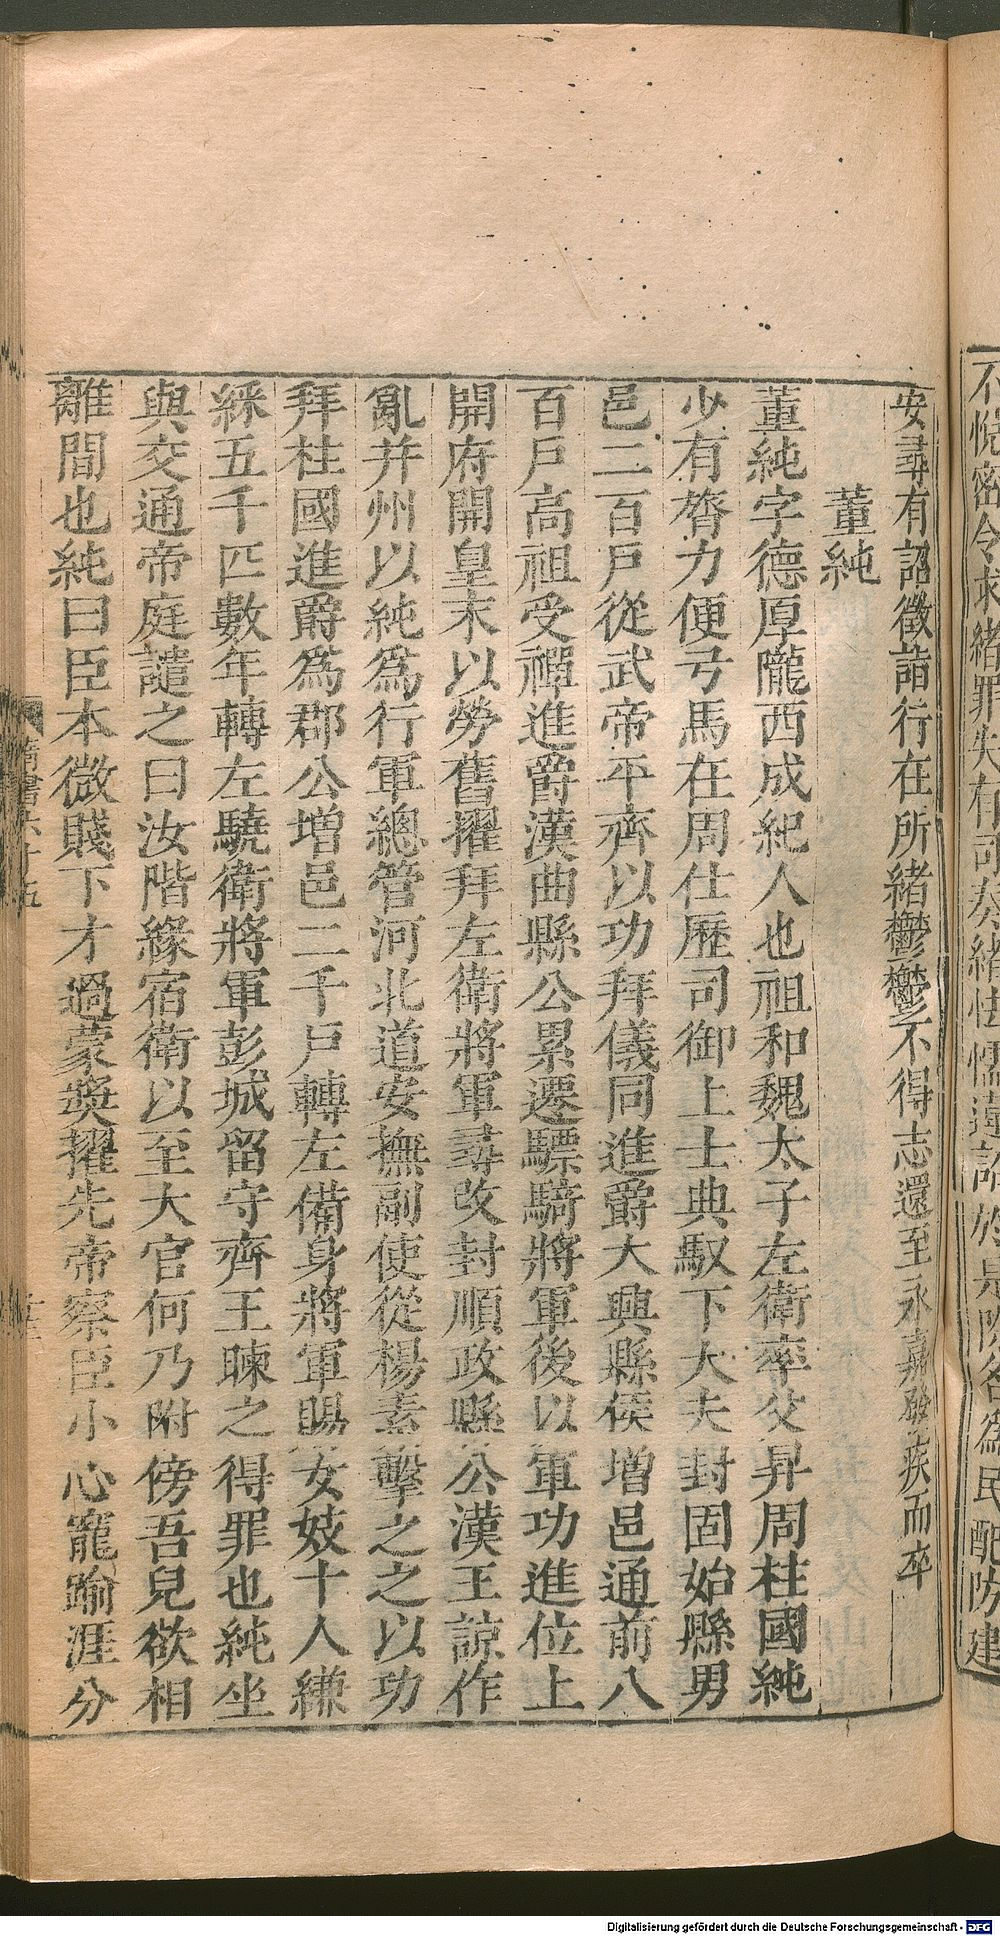 不悅密令求緒罪失有司奏緒怯懦違詔於是除名為民配防建
安尋有詔徵詣行在所緒鬱鬱不得志還至永嘉發疾而卒
董純
董純字德厚隴西成紀人也祖和魏太子左衛率父昇周柱國純
少有膂力便弓馬在周仕歷司御上士典馭下大夫封固始縣男
邑二百戶從武帝平齊以功拜儀同進爵大興縣侯增邑通前八
百戶高祖受禪進爵漢曲縣公累遷驃騎將軍後以軍功進位上
開府開皇末以勞舊擢拜左衛將軍尋改封順政縣公漢王諒作
亂并州以純爲行軍總管河北道安撫副使從楊素擊之之以功
拜柱國進爵爲郡公增邑二千戶轉左備身將軍賜女妓十人縑
綵五千匹數年轉左驍衛將軍彭城留守齊王暕之得罪也純坐
與交通帝庭譴之曰汝階緣宿衛以至大官何乃附傍吾兒欲相
離間也純曰臣本微賤下才過蒙奬擢先帝察臣小心寵踰涯分
隋書六十五
Digitalisierung gefördert durch die Deutsche Forschungsgemeinschaft - DFG